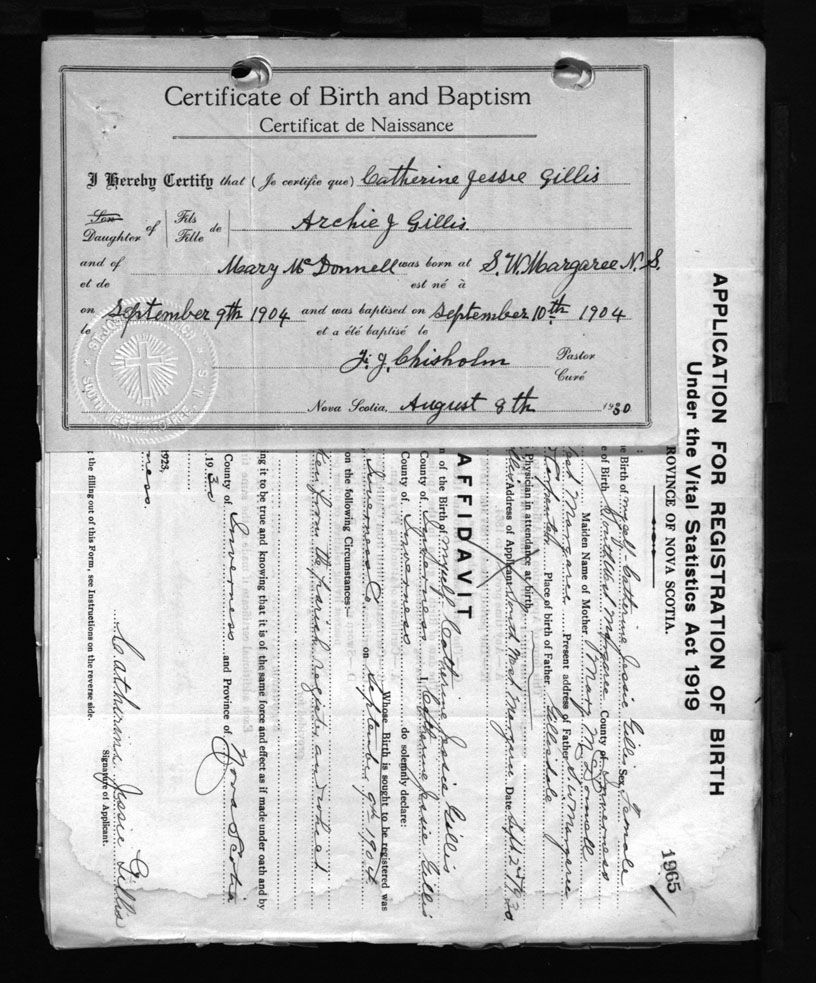 Certificate of Birth and Baptism
Certificat de Naissance
I Hereby Certify that (Je certifie que) Catherine Jessie Gillis
Son Daughter of Fils Fille de Archie J Gillis.
and of Mary McDonnell was born at S. W. Margaree N. S.
et de est né à
on September 9th 1904 and was baptised on September 10th 1904
le et a été baptisé le
J. J. Chisholm Pastor
Curé
Nova Scotia, August 8th 1930
APPLICATION FOR REGISTRATION OF BIRTH
Under the Vital Statistics Act 1919
ROVINCE OF NOVA SCOTIA.
1965
e Birth of myself Catherine Jessie Gillis Sex Female
e of Birth Southwest Margaree County of Inverness
Maiden Name of Mother Mary McDonnell
est Margaree Present address of Father S W Margaree
Carpenter Place of birth of Father Gillisdale
Physician in attendance at birth
Address of Applicant South West Margaree Date Sept 2nd 1930
AFFIDAVIT
n of the Birth of myself Catherine Jessie Gillis
County of Inverness I, Catherine Jessie Gillis
County of Inverness do solemnly declare:
Whose Birth is sought to be registered was
Inverness Co. on September 9th 1904
on the following Circumstances:—
ken from the parish register and which
ng it to be true and knowing that it is of the same force and effect as if made under oath and by
County of Inverness and Province of Nova Scotia
1930
1923,
ness.
Catherine Jessie Gillis
Signature of Applicant.
the filling out of this Form, see Instructions on the reverse side.